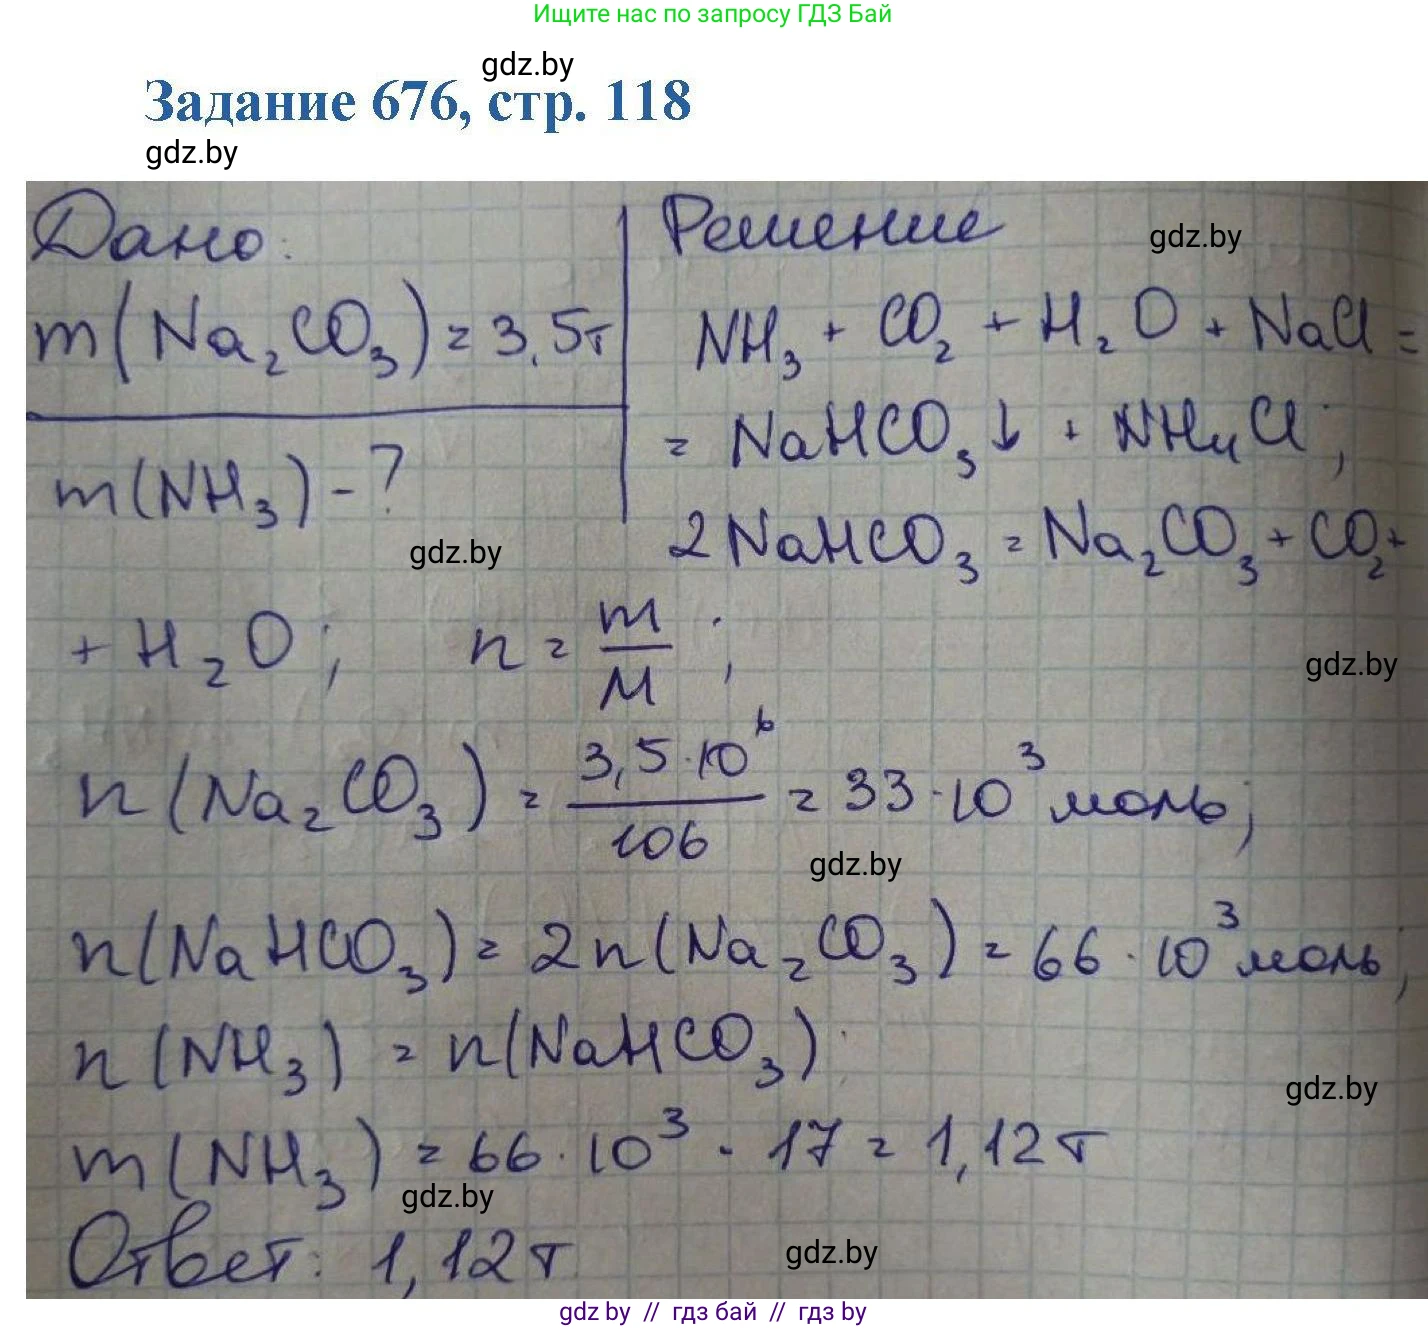 Ищите нас по запросу ГДЗ Бай
gdz.by
Задание 676, стр. 118
gdz.by
Дано:
m(Na₂CO₃) = 3,5т
m(NH₃) - ?
Решение
gdz.by
NH₃ + CO₂ + H₂O + NaCl =
= NaHCO₃↓ + NH₄Cl;
2NaHCO₃ = Na₂CO₃ + CO₂ +
gdz.by
+ H₂O; n = m/M;
gdz.by
n(Na₂CO₃) = 3,5·10⁶/106 = 33·10³ моль;
gdz.by
n(NaHCO₃) = 2n(Na₂CO₃) = 66·10³ моль;
n(NH₃) = n(NaHCO₃).
gdz.by
m(NH₃) = 66·10³ · 17 = 1,12 т
gdz.by
Ответ: 1,12 т.
gdz.by
gdz by // гдз бай // гдз by